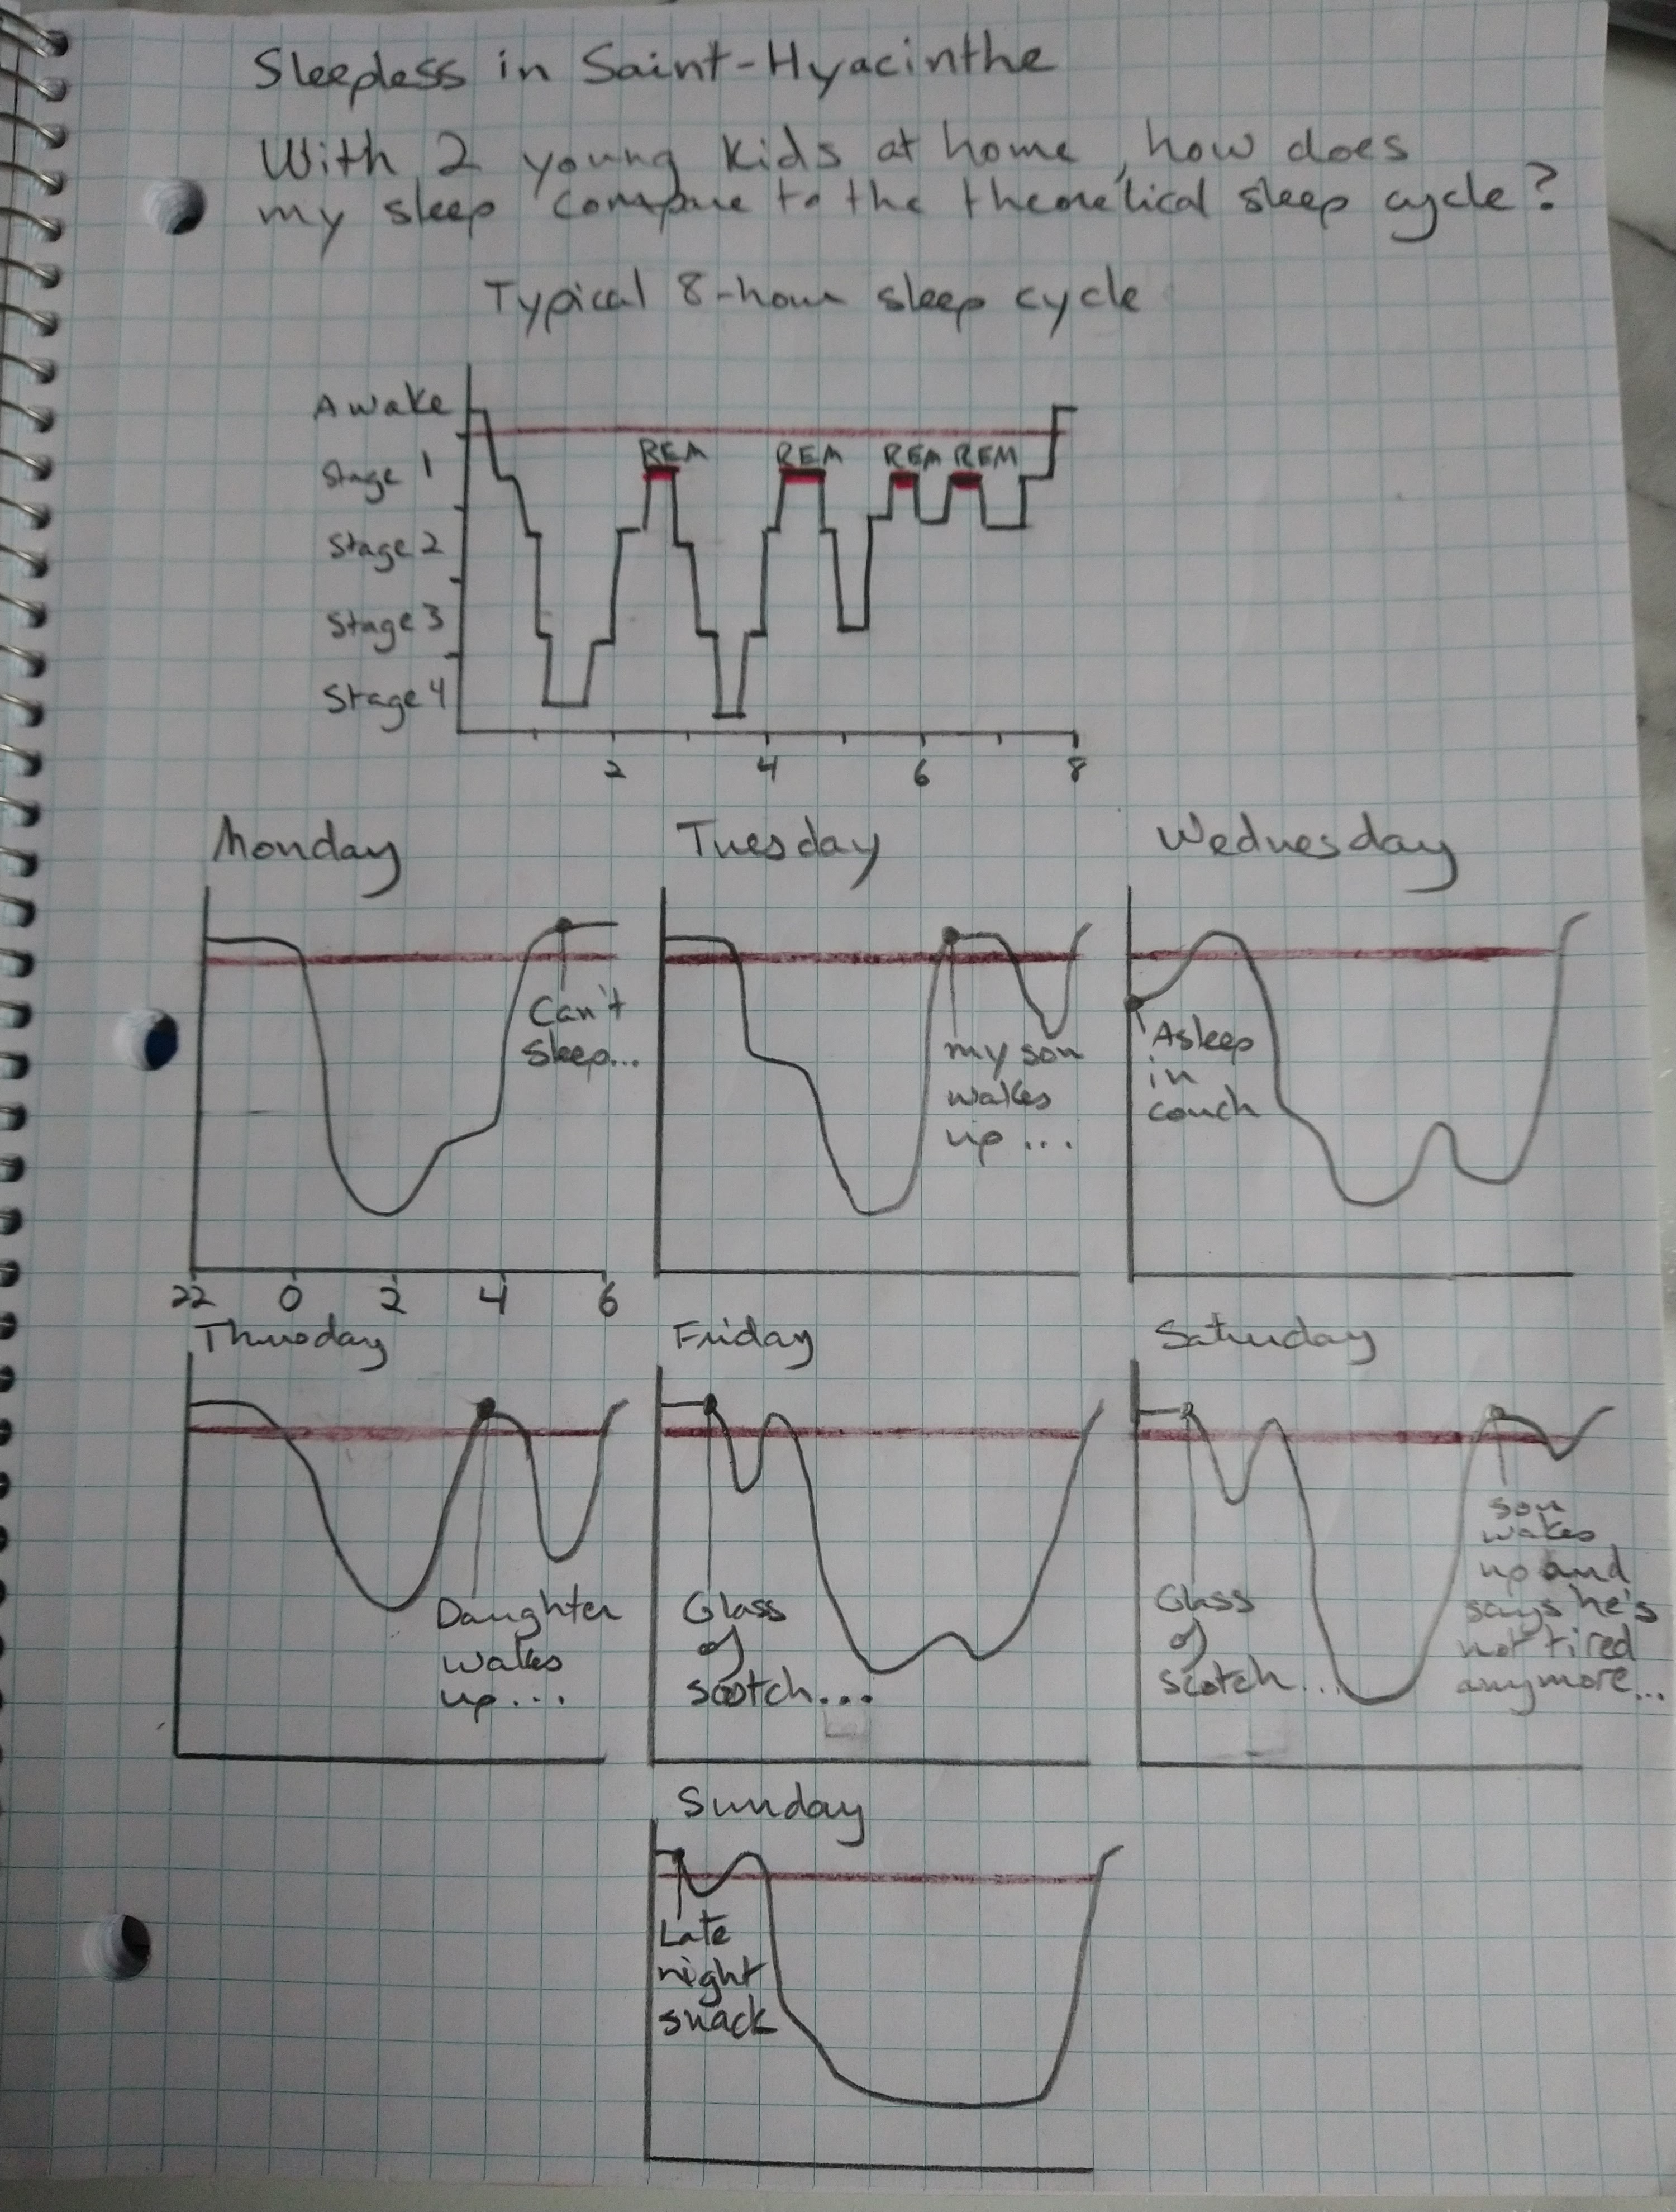 Sleepless in Saint-Hyacinthe
With 2 young kids at home, how does
my sleep compare to the theoretical sleep cycle?
Typical 8-hour sleep cycle
Awake
Stage 1
Stage 2
Stage 3
Stage 4
REM REM REM REM
2 4 6 8
Monday
Can't
sleep...
22 0 2 4 6
Tuesday
my son
wakes
up...
Wednesday
Asleep
in
couch
Thursday
Daughter
wakes
up...
Friday
Glass
of
scotch...
Saturday
Glass
of
scotch...
son
wakes
up and
says he's
not tired
anymore...
Sunday
Late
night
snack